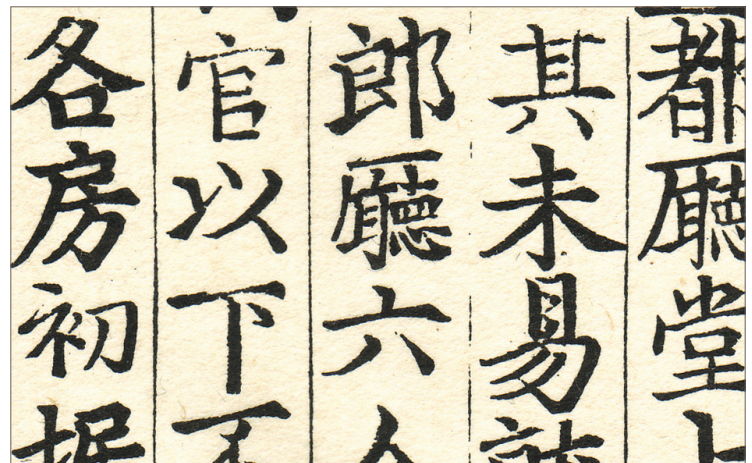 都廳堂上
其未易就
郎廳六人
官以下不
各房初掘